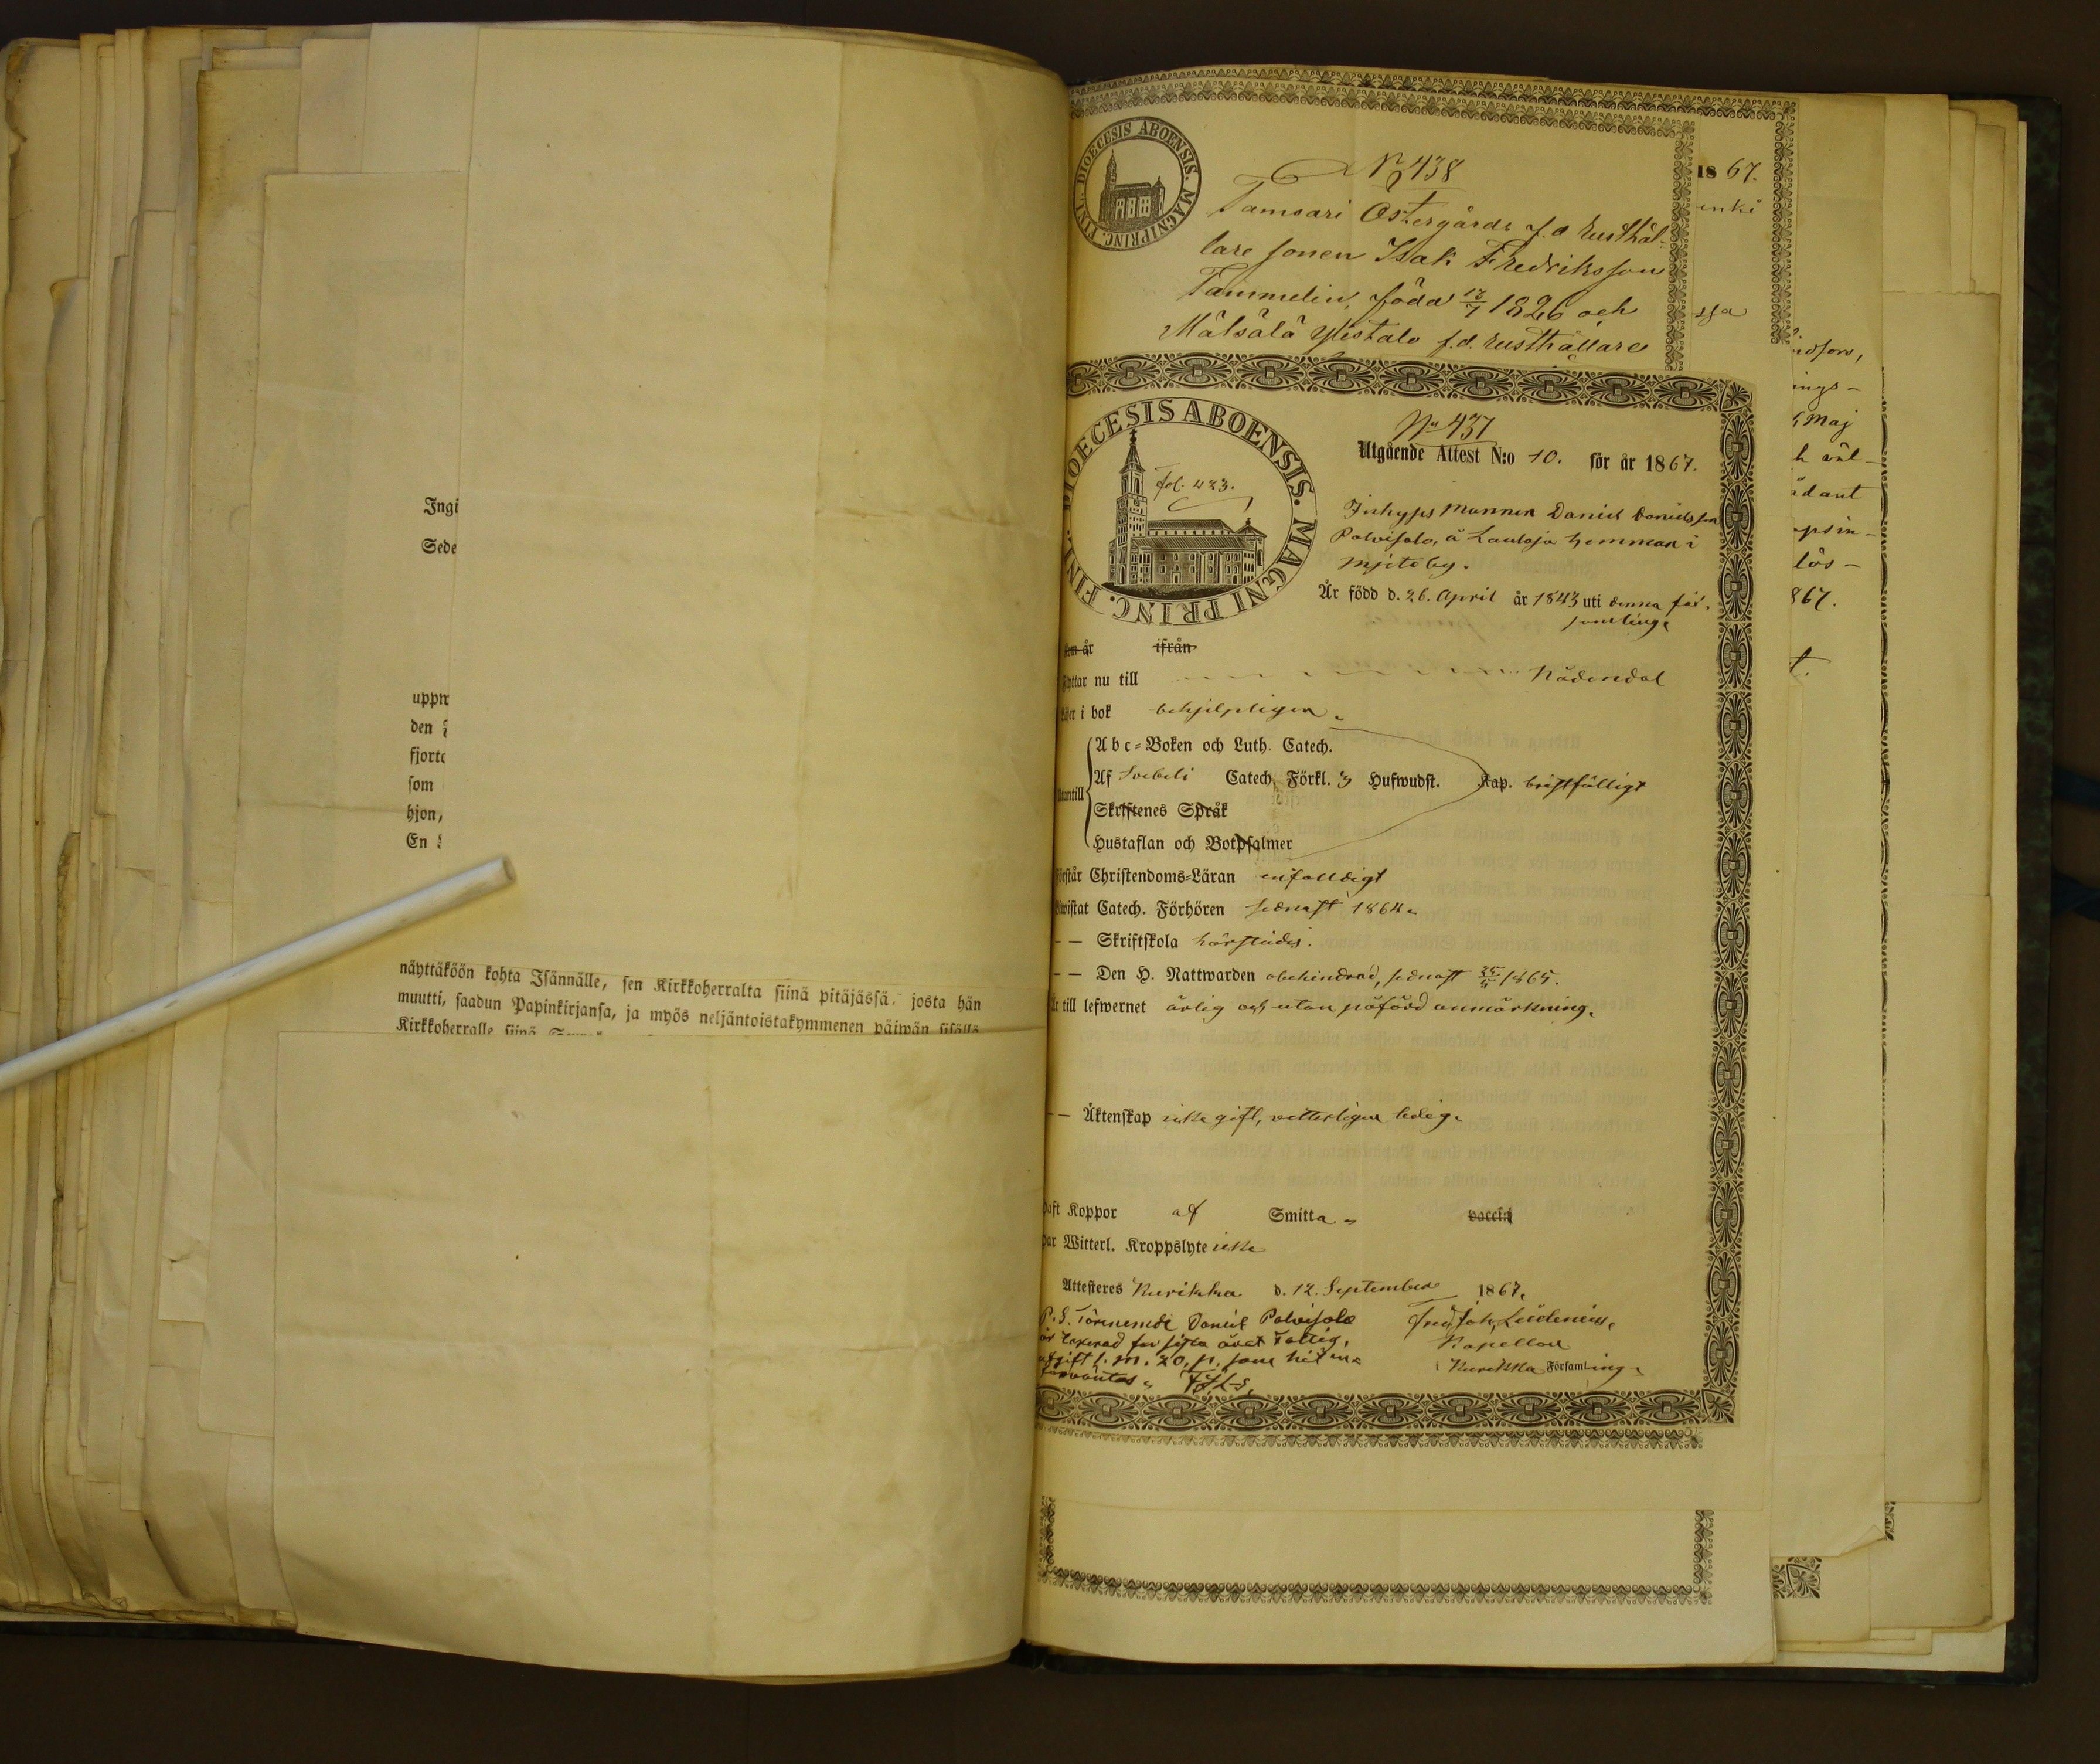 Ingi
Sede
uppm
den
fjorto
som
hjon,
En
näyttäköön kohta Isännälle, sen Kirkkoherralta siinä pitäjässä, josta hän
muutti, saadun Papinkirjansa, ja myös neljäntoistakymmenen päiwän sisällä
Kirkkoherralle siinä
DIOECESIS ABOENSIS. MAGNI PRINC. FINL.
No 438
Tamsari Östergårds f.d. Rusthål-
lare sonen Isak Fredriksson
Tammelin, född 13/7 1826 och
Mälsälä Ylistalo f.d. Rusthållare
1867.
enki
ssa
idson,
ings-
Maj
ädant
lös-
867.
DIOECESIS ABOENSIS. MAGNI PRINC. FINL.
Fol. 423.
No 437
Utgående Attest N:o 10. för år 1867.
Inhyses Mannen Daniel Danielsson
Polvisalo, å Lauloja hemman i
Mjeto by.
Är född d. 26. April år 1843 uti denna för-
samling.
ifrån
Flyttar nu till Nådendal
Läser i bok behjelpligen.
Abc-Boken och Luth. Catech.
Af Svebeli Catech. Förkl. 3 Hufwudst. Kap. bristfälligt
Utantill
Skriftenes Språk
Hustaflan och Botpsalmer
Förstår Christendoms-Läran enfaldigt
Bewistat Catech. Förhören senast 1864.
— — Skriftskola härstädes.
— — Den H. Nattwarden obehindrad, senast 1865.
Är till lefwernet ärlig och utan påförd anmärkning.
— — Äktenskap icke gift, vetterligen ledig.
Haft Koppor af Smitta vaccin
Har Witterl. Kroppslyte icke
Attesteres Kurikka d. 12. September 1867.
P.S. Förenemde Daniel Polvisalo
är taxerad för sista året fattig,
afgift 1. m. 20. p. som hit in-
förväntas. FJL-s.
Kapellan
i Kurikka Församling.